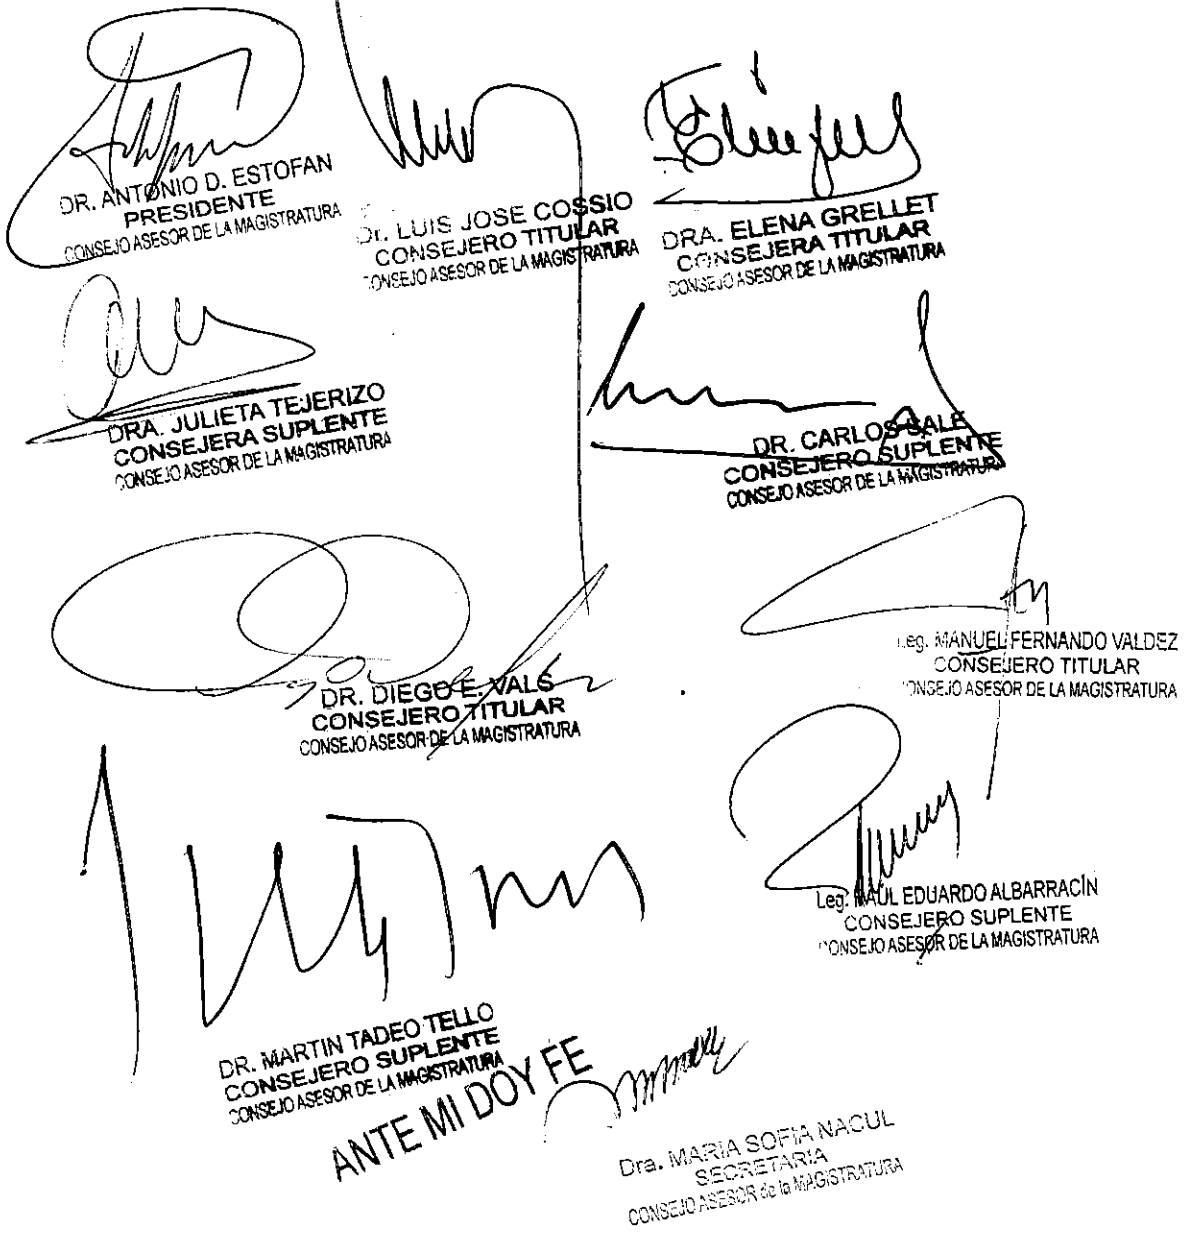 DR. ANTONIO D. ESTOFAN
PRESIDENTE
CONSEJO ASESOR DE LA MAGISTRATURA
Dr. LUIS JOSE COSSIO
CONSEJERO TITULAR
CONSEJO ASESOR DE LA MAGISTRATURA
DRA. ELENA GRELLET
CONSEJERA TITULAR
CONSEJO ASESOR DE LA MAGISTRATURA
DRA. JULIETA TEJERIZO
CONSEJERA SUPLENTE
CONSEJO ASESOR DE LA MAGISTRATURA
DR. CARLOS SALE
CONSEJERO SUPLENTE
CONSEJO ASESOR DE LA MAGISTRATURA
Leg. MANUEL FERNANDO VALDEZ
CONSEJERO TITULAR
CONSEJO ASESOR DE LA MAGISTRATURA
DR. DIEGO E. VALS
CONSEJERO TITULAR
CONSEJO ASESOR DE LA MAGISTRATURA
Leg. RAUL EDUARDO ALBARRACÍN
CONSEJERO SUPLENTE
CONSEJO ASESOR DE LA MAGISTRATURA
DR. MARTIN TADEO TELLO
CONSEJERO SUPLENTE
CONSEJO ASESOR DE LA MAGISTRATURA
ANTE MI DOY FE
Dra. MARIA SOFIA NACUL
SECRETARIA
CONSEJO ASESOR de la MAGISTRATURA